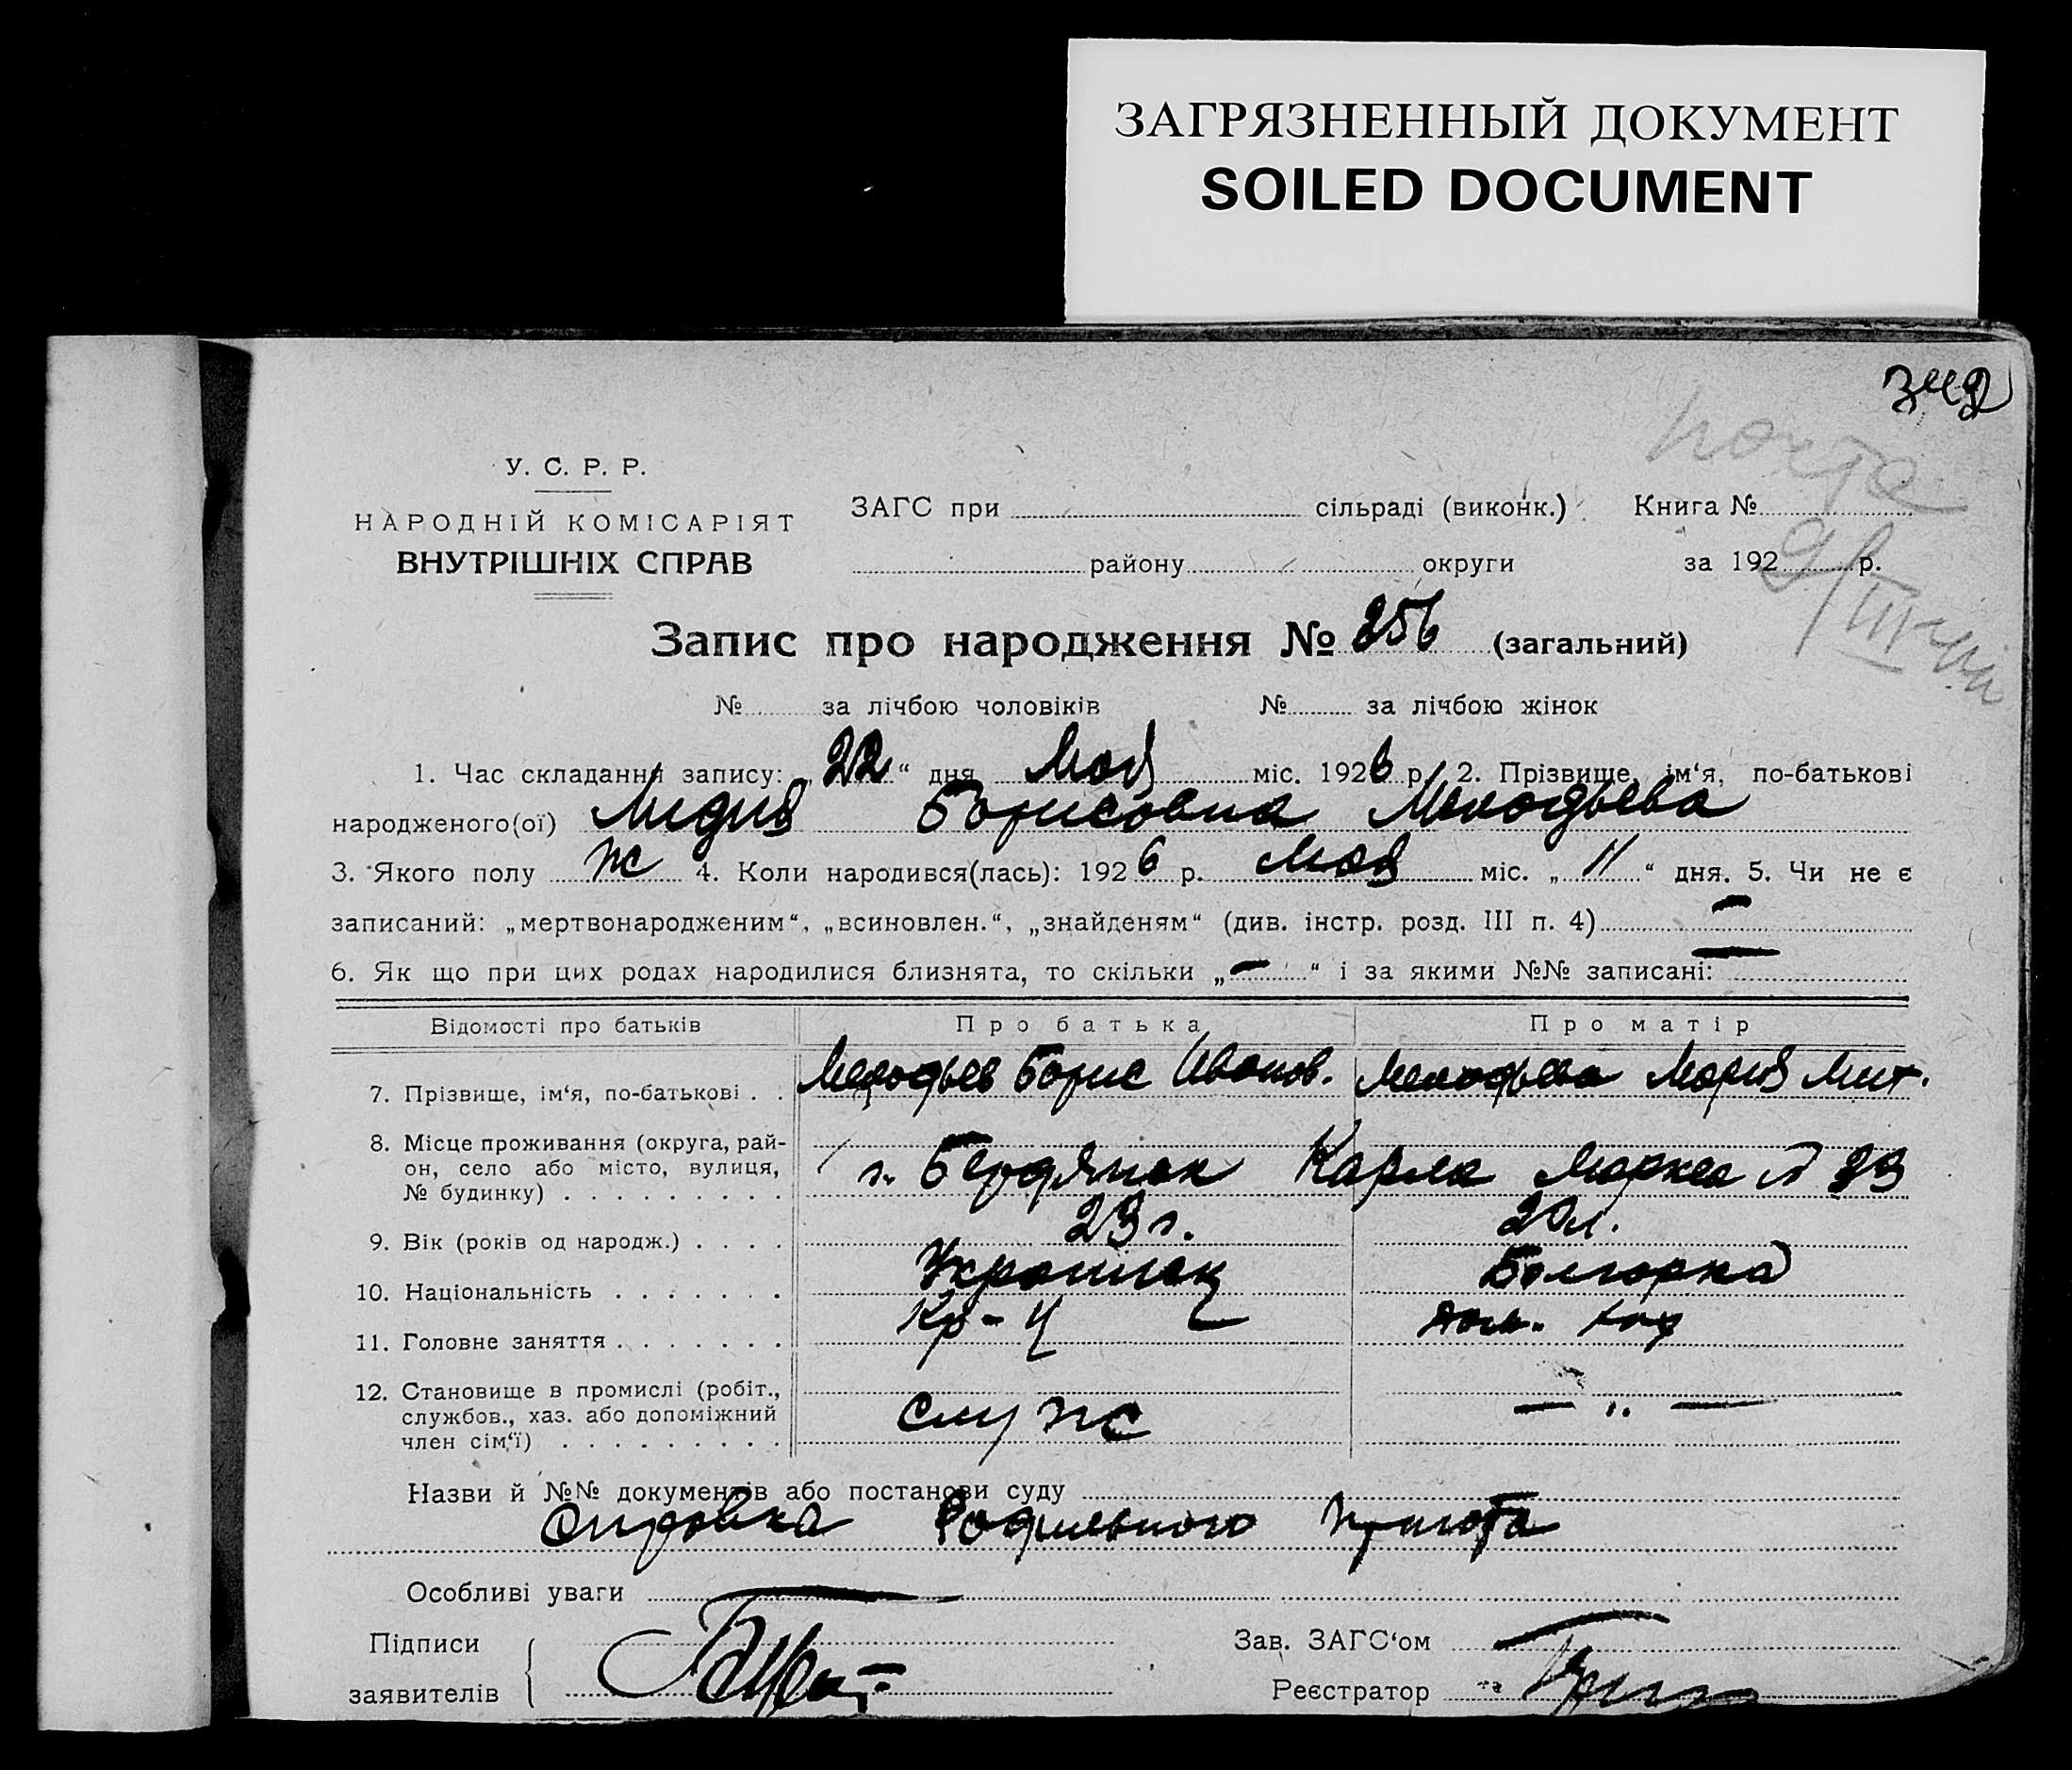 ЗАГРЯЗНЕННЫЙ ДОКУМЕНТ
SOILED DOCUMENT
342
почта
У. С. Р. Р.
НАРОДНІЙ КОМІСАРІЯТ
ВНУТРІШНІХ СПРАВ
ЗАГС при сільраді (виконк.) Книга №
району округи за 192 р.
Запис про народження № 256 (загальний)
№ за лічбою чоловіків № за лічбою жінок
1. Час складання запису: 22 “ дня Мая міс. 1926 р. 2. Прізвище, ім‘я, по-батькові
народженого(ої) Лидия Борисовна Мелодьева
3. Якого полу ж 4. Коли народився(лась): 1926 р. мая міс. „ 11 “ дня. 5. Чи не є
записаний: „мертвонародженим“, „всиновлен.“, „знайденям“ (див. інстр. розд. III п. 4) —
6. Як що при цих родах народилися близнята, то скільки „ — “ і за якими №№ записані: —
Відомості про батьків Про батька Про матір
7. Прізвище, ім‘я, по-батькові . . Борис Иванов. Мария Мит.
8. Місце проживання (округа, рай-
он, село або місто, вулиця,
№ будинку) . . . . . . . . . г. Бердянск Карла Маркса №
9. Вік (років од народж.) . . . . 23 г. 20 л.
10. Національність . . . . . . . Украинец Болгарка
11. Головне заняття . . . . . . . Кр-ц дом. хоз
12. Становище в промислі (робіт.,
службов., хаз. або допоміжний
член сім‘ї) . . . . . . . . . служ — „ —
Назви й №№ документів або постанови суду
Справка Родильного приюта
Особливі уваги —
Підписи
заявителів
Зав. ЗАГС‘ом
Реєстратор